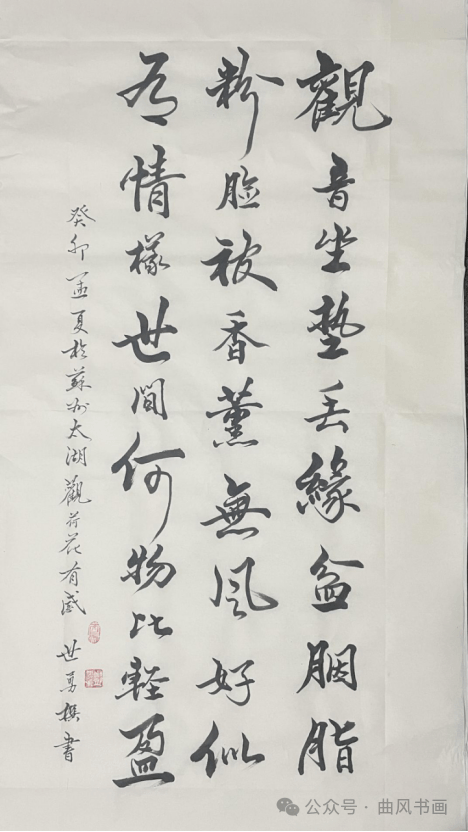 觀音坐墊丢緣盆胭脂
粉脸被香薰無風好似
有情樣世間何物比輕盈
癸卯孟夏於蘇州太湖觀荷花有感 世勇撰書
公众号 · 曲风书画